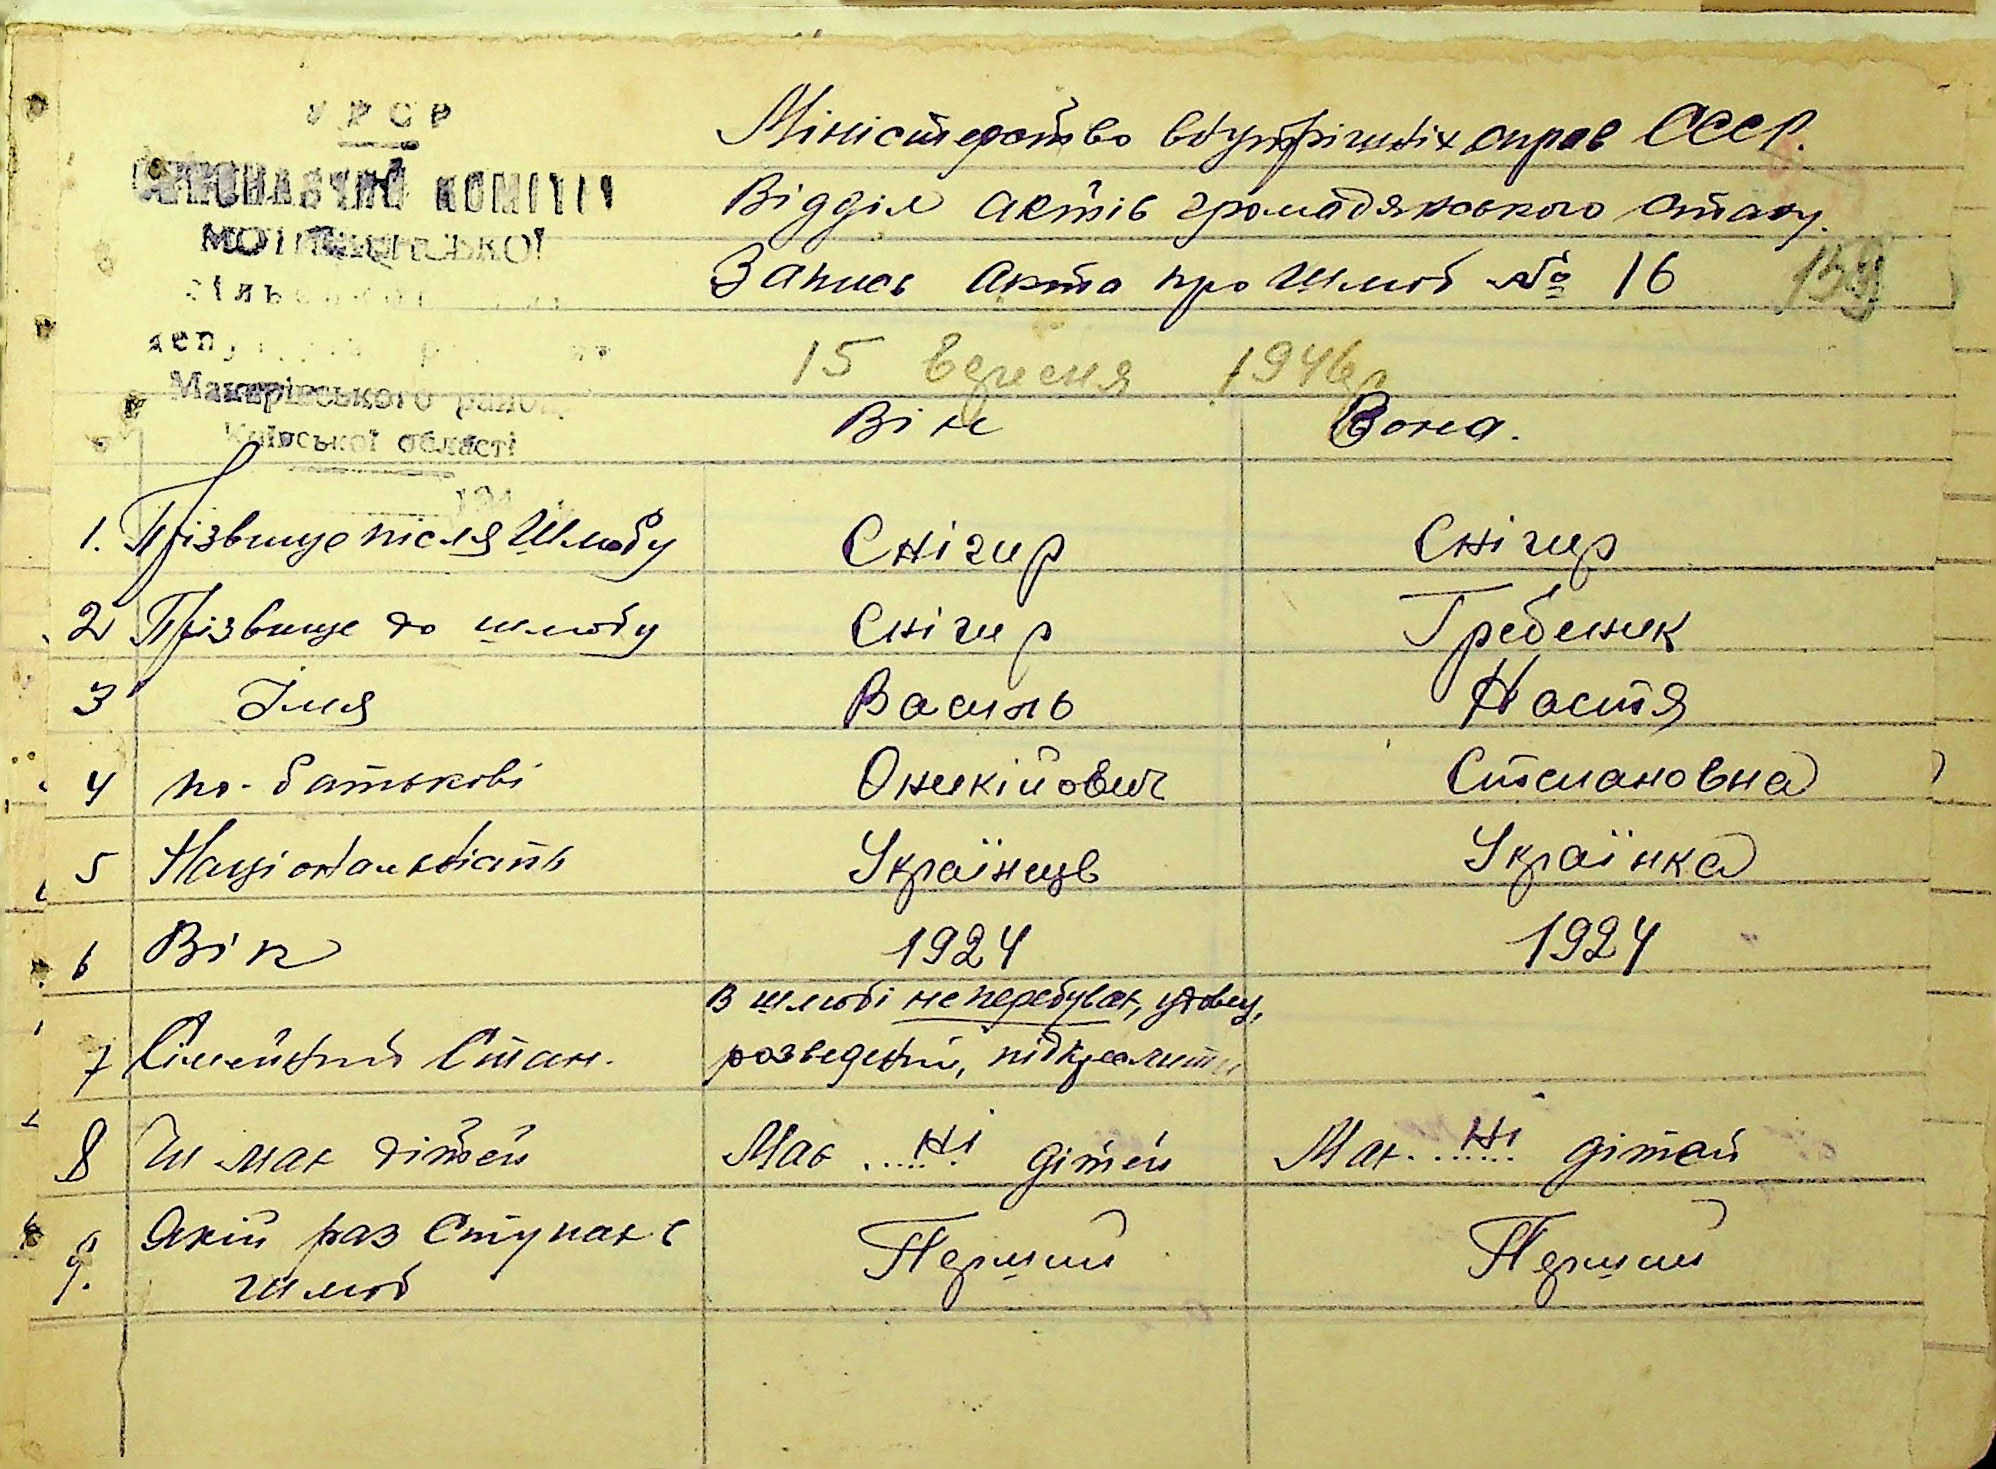 УРСР
ВИКОНАВЧИЙ КОМІТЕТ
Міністерство внутрішніх справ СССР.
Відділ актів громадянського стану.
Запись акта про шлюб № 16
15 вересня 1946р
Макарівського району
Київської області
Він Вона.
1. Прізвище після шлюбу Снігир Снігир
2 Прізвище до шлюбу Снігир Гребеник
3 Імя Василь Настя
4 по-батькові Оникійович Степановна
5 Національність Українець Українка
6 Вік 1924 1924
В шлюбі не перебував, удовец,
7 Сімейний Стан. розведений, підкреслити
8 Чи має дітей Має ...Ні... дітей Має ...Ні... дітей
9. Який раз Ступає в Перший Перший
шлюб